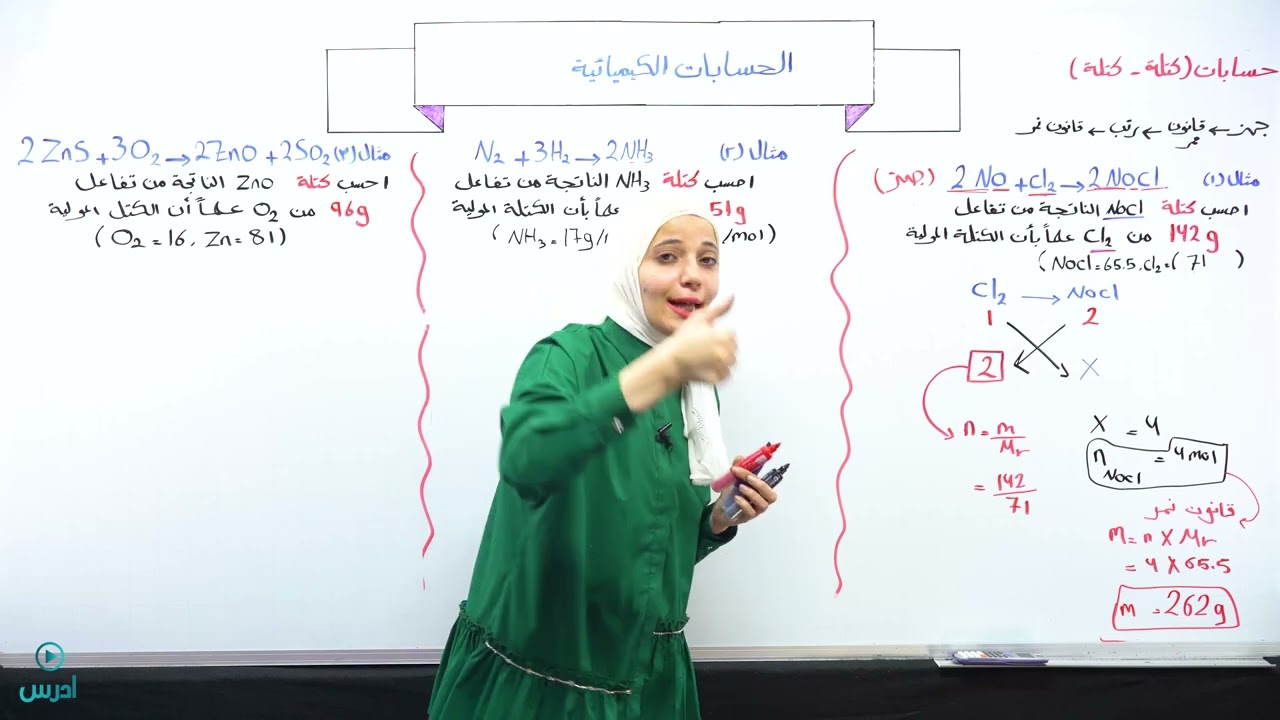 الحسابات الكيميائية
حسابات (كتلة - كتلة)
جهز ← قانون ← رتب ← قانون نمر
نمر
مثال (١) 2 NO + Cl2 → 2 NOCl (جهز)
احسب كتلة NOCl الناتجة من تفاعل
142 g من Cl2 علماً بأن الكتلة المولية
(NOCl = 65.5 , Cl2 = ( 71 )
Cl2 → NOCl
1 2
2 X
n = m/Mr
= 142/71
X = 4
n NOCl = 4 mol
قانون نمر
m = n X Mr
= 4 X 65.5
m = 262 g
مثال (٢) N2 + 3H2 → 2NH3
احسب كتلة NH3 الناتجة من تفاعل
51g علماً بأن الكتلة المولية
( NH3 = 17g/ /mol )
مثال (٣) 2 ZnS + 3O2 → 2ZnO + 2SO2
احسب كتلة ZnO الناتجة من تفاعل
96g من O2 علماً أن الكتل المولية
( O2 = 16 , Zn = 81 )
ادرس